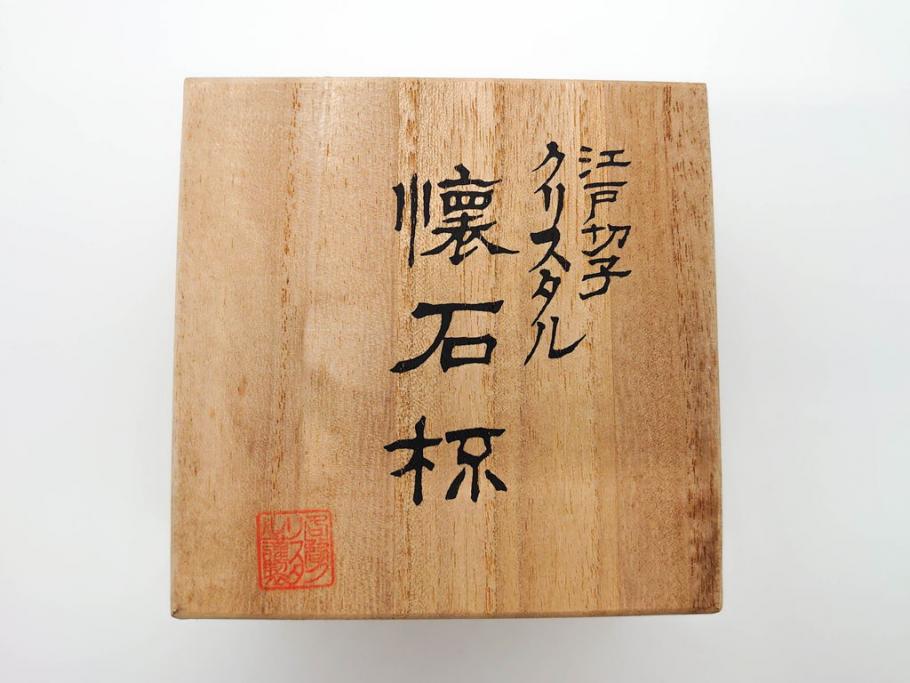 江戸切子
クリスタル
懐石杯